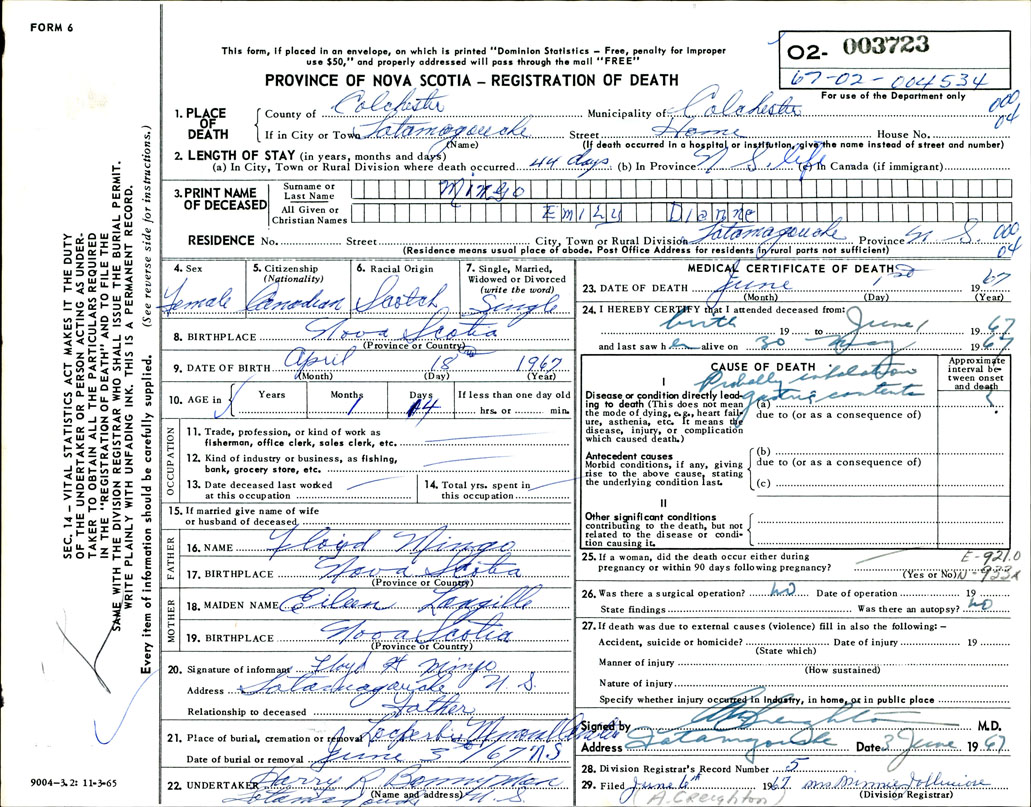 FORM 6
This form, if placed in an envelope, on which is printed "Dominion Statistics – Free, penalty for improper
use $50," and properly addressed will pass through the mail "FREE"
PROVINCE OF NOVA SCOTIA – REGISTRATION OF DEATH
O2- 003723
67-02-004534
For use of the Department only
1. PLACE OF DEATH
County of Colchester Municipality of Colchester 000 04
If in City or Town Tatamagouche Street Home House No.
(Name) (If death occurred in a hospital or institution, give the name instead of street and number)
2. LENGTH OF STAY (in years, months and days)
(a) In City, Town or Rural Division where death occurred 44 days (b) In Province N S. life (c) In Canada (if immigrant)
3. PRINT NAME OF DECEASED
Surname or Last Name Mingo
All Given or Christian Names Emily Dianne
RESIDENCE No. Street City, Town or Rural Division Tatamagouche Province N S. 000 04
(Residence means usual place of abode. Post Office Address for residents in rural parts not sufficient)
4. Sex Female
5. Citizenship (Nationality) Canadian
6. Racial Origin Scotch
7. Single, Married, Widowed or Divorced (write the word) Single
8. BIRTHPLACE Nova Scotia
(Province or Country)
9. DATE OF BIRTH April 18 1967
(Month) (Day) (Year)
10. AGE in Years Months 1 Days 14 If less than one day old hrs. or min.
OCCUPATION
11. Trade, profession, or kind of work as
fisherman, office clerk, sales clerk, etc.
12. Kind of industry or business, as fishing,
bank, grocery store, etc.
13. Date deceased last worked at this occupation
14. Total yrs. spent in this occupation
15. If married give name of wife
or husband of deceased
FATHER
16. NAME Floyd Mingo
17. BIRTHPLACE Nova Scotia
(Province or Country)
MOTHER
18. MAIDEN NAME Eileen Langille
19. BIRTHPLACE Nova Scotia
(Province or Country)
20. Signature of informant Floyd H Mingo
Address Tatamagouche N. S.
Relationship to deceased Father
21. Place of burial, cremation or removal
Date of burial or removal June 3 1967 N.S
22. UNDERTAKER Harry R Bonnyman
(Name and address)
Tatamagouche N. S.
MEDICAL CERTIFICATE OF DEATH
23. DATE OF DEATH June 1 1967
(Month) (Day) (Year)
24. I HEREBY CERTIFY that I attended deceased from:
birth 19 to June 1 1967
and last saw h er alive on 30 May 1967
CAUSE OF DEATH
Approximate interval between onset and death
I
Probably inhalation
gastric contents
Disease or condition directly leading to death (This does not mean the mode of dying, e.g., heart failure, asthenia, etc. It means the disease, injury, or complication which caused death.)
(a)
due to (or as a consequence of)
Antecedent causes
Morbid conditions, if any, giving rise to the above cause, stating the underlying condition last.
(b)
due to (or as a consequence of)
(c)
II
Other significant conditions
contributing to the death, but not related to the disease or condition causing it.
25. If a woman, did the death occur either during
pregnancy or within 90 days following pregnancy?
(Yes or No)
E-921.0
N-933x
26. Was there a surgical operation? no Date of operation 19
State findings Was there an autopsy? no
27. If death was due to external causes (violence) fill in also the following: –
Accident, suicide or homicide? Date of injury 19
(State which)
Manner of injury
(How sustained)
Nature of injury
Specify whether injury occurred in industry, in home, or in public place
Signed by A Creighton M.D.
Address Tatamagouche Date 3 June 1967
28. Division Registrar's Record Number 5
29. Filed June 6th 1967 Mrs Minnie
(A. Creighton) (Division Registrar)
SEC. 14 – VITAL STATISTICS ACT MAKES IT THE DUTY
OF THE UNDERTAKER OR PERSON ACTING AS UNDER-
TAKER TO OBTAIN ALL THE PARTICULARS REQUIRED
IN THE "REGISTRATION OF DEATH" AND TO FILE THE
SAME WITH THE DIVISION REGISTRAR WHO SHALL ISSUE THE BURIAL PERMIT.
WRITE PLAINLY WITH UNFADING INK. THIS IS A PERMANENT RECORD.
Every item of information should be carefully supplied. (See reverse side for instructions.)
9004–3.2: 11-3-65